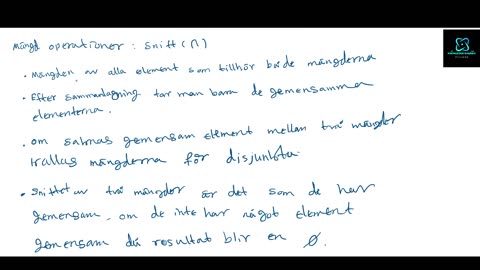 mängd operationer : snitt (∩)
• Mängden av alla element som tillhör både mängderna
• Efter sammanlagning tar man bara de gemensamma
elementerna.
• om saknas gemensam element mellan två mängder
kallas mängderna för disjunkta.
• Snittet av två mängder är det som de har
gemensam. om de inte har något element
gemensam då resultat blir en ∅.